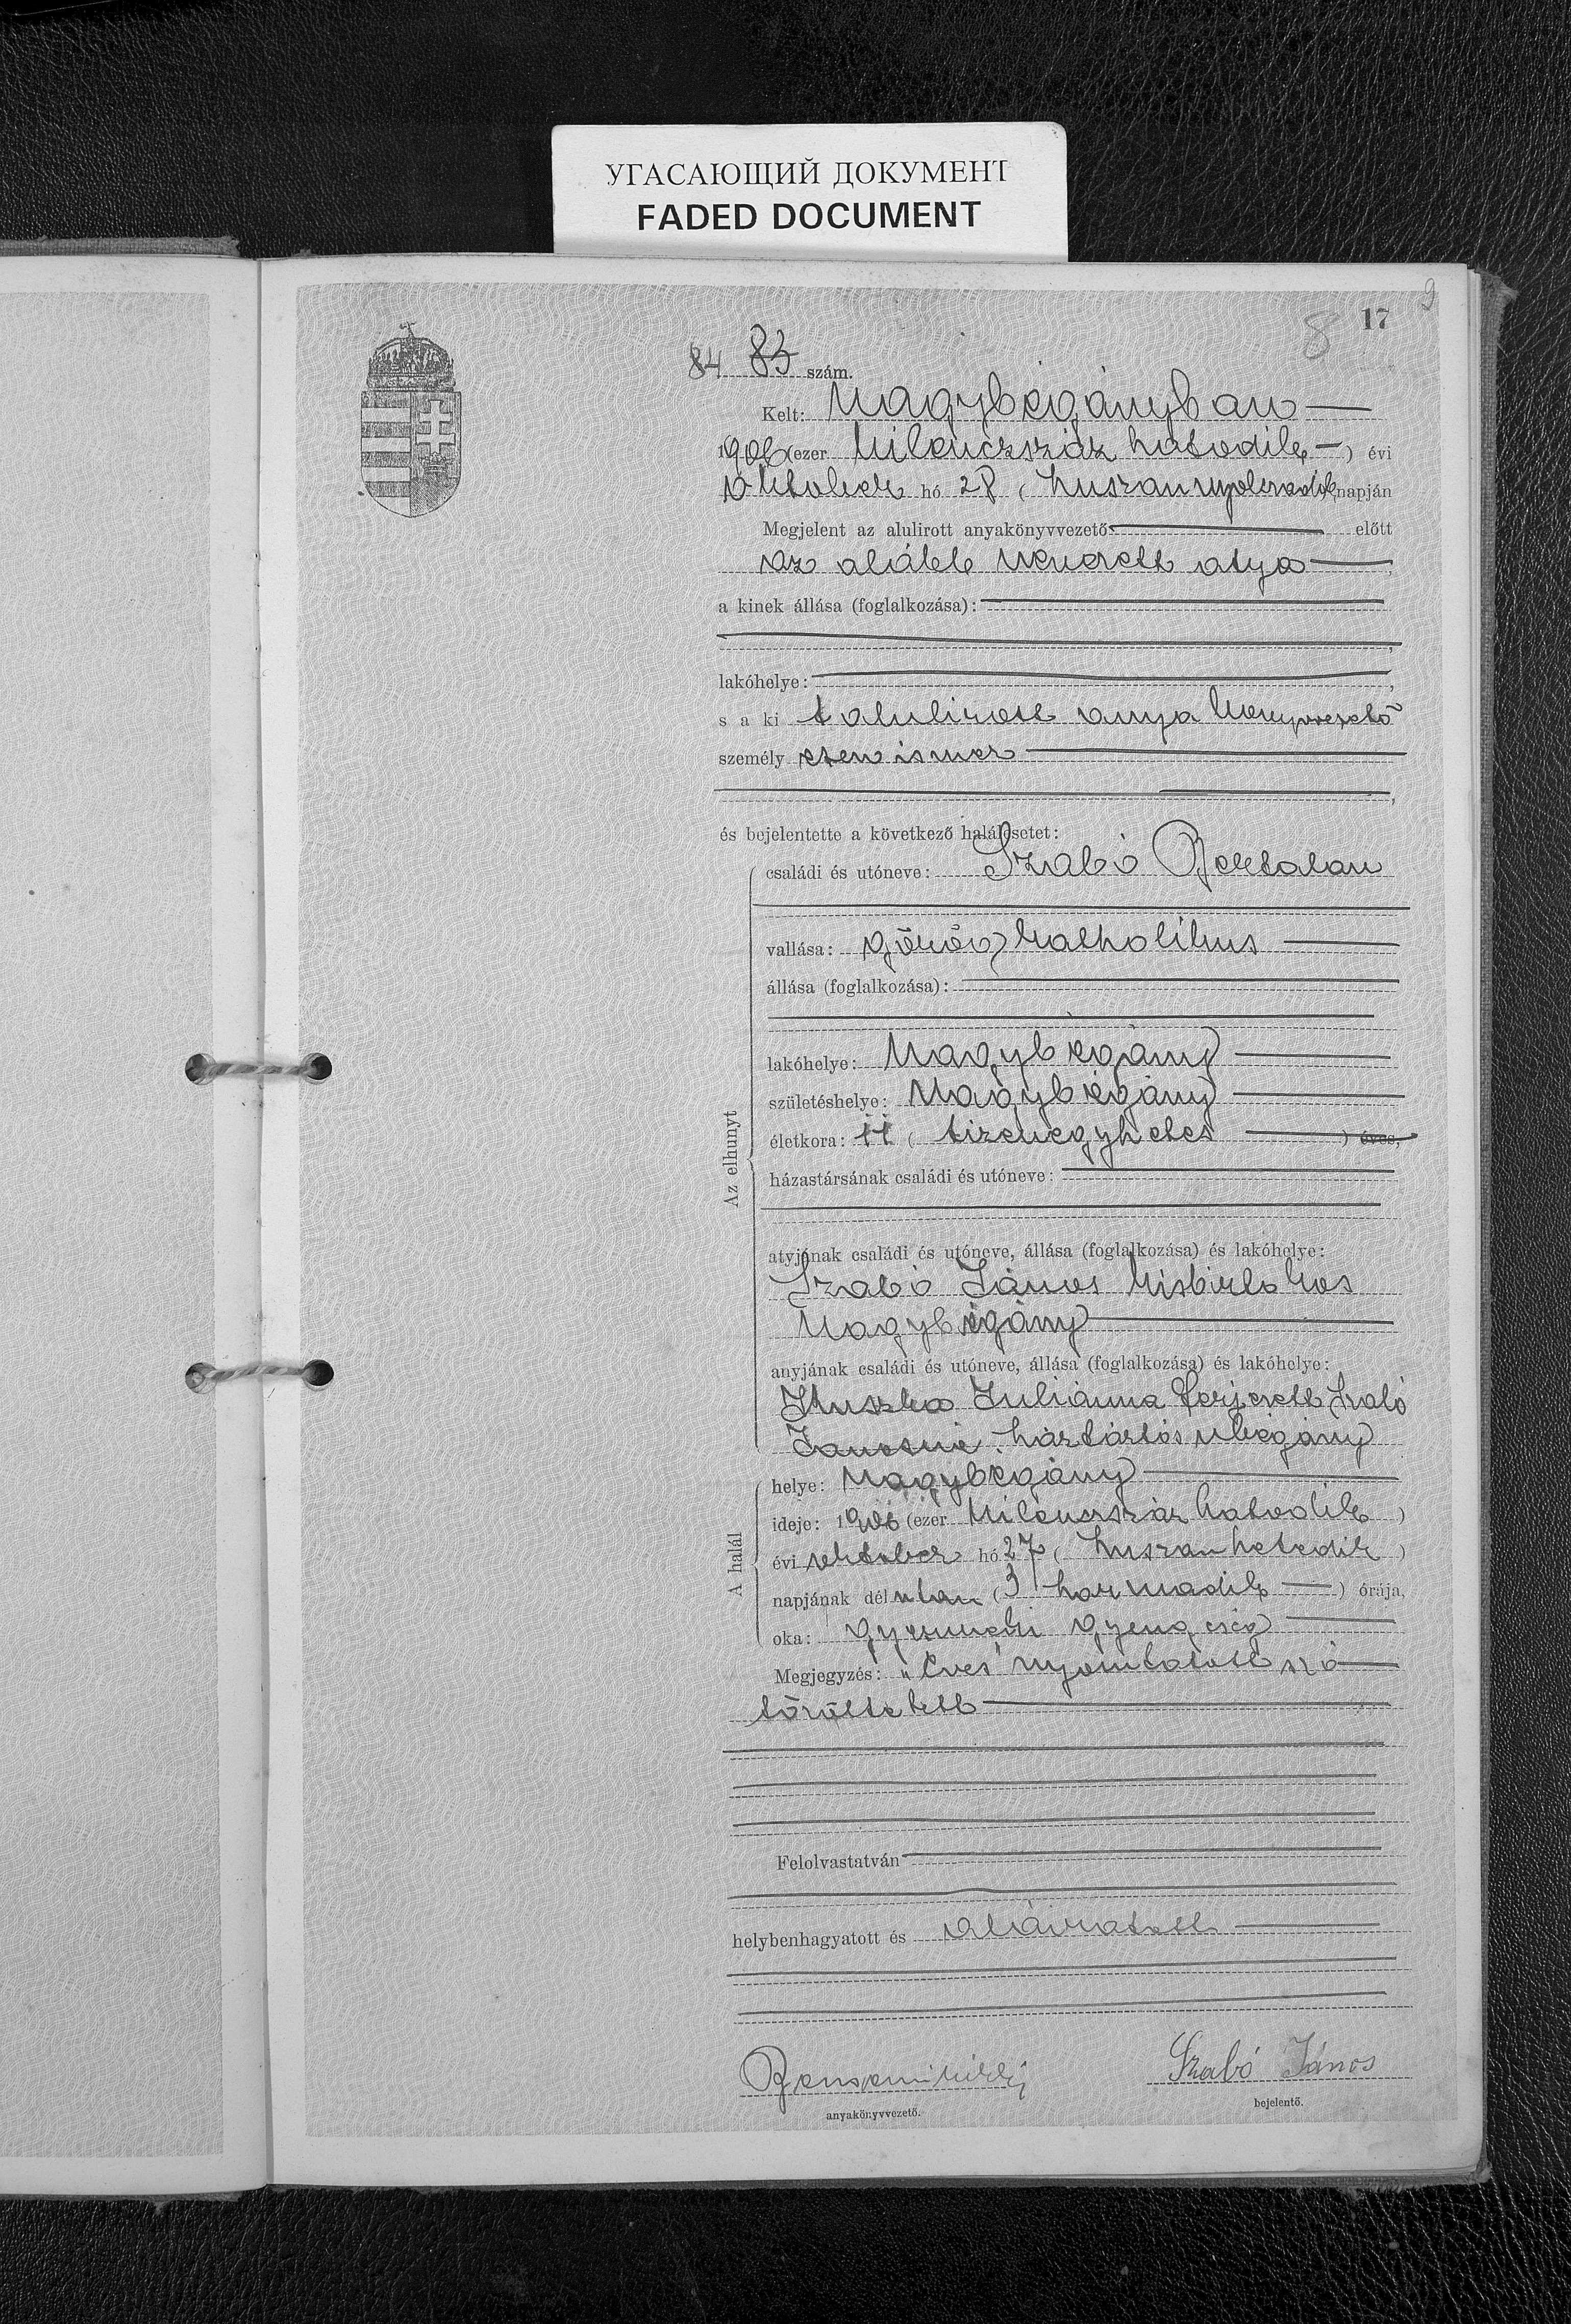 УГАСАЮЩИЙ ДОКУМЕНТ
FADED DOCUMENT
9
8 17
84 83 szám.
Kelt: Nagybégányban
1906 (ezer kilenczszáz hatodik) évi
október hó 28 (huszannyolczadik) napján
Megjelent az alulirott anyakönyvvezető előtt
az alább nevezett atya,
a kinek állása (foglalkozása):
lakóhelye:
s a ki t alulirott anyakönyvvezető
személyesen ismer
és bejelentette a következő halálesetet:
családi és utóneve: Szabó Bertalan
vallása: görög katholikus
állása (foglalkozása):
lakóhelye: Nagybégány
születéshelye: Nagybégány
életkora: 11 (tizenegyhetes) éves,
Az elhunyt
házastársának családi és utóneve:
atyjának családi és utóneve, állása (foglalkozása) és lakóhelye:
Szabó János kisbirtokos
Nagybégány
anyjának családi és utóneve, állása (foglalkozása) és lakóhelye:
Julianna férjezett Szabó
Jánosné háztartós nbégány
helye: Nagybégány
ideje: 1906 (ezer kilenczszáz hatodik)
A halál
évi október hó 27 (huszanhetedik)
napjának délután (3 harmadik) órája,
oka: gyengeség
Megjegyzés: „éves" nyomtatott szó
töröltetett
Felolvastatván
helybenhagyatott és aláiratott
Szabó János
anyakönyvvezető.
bejelentő.